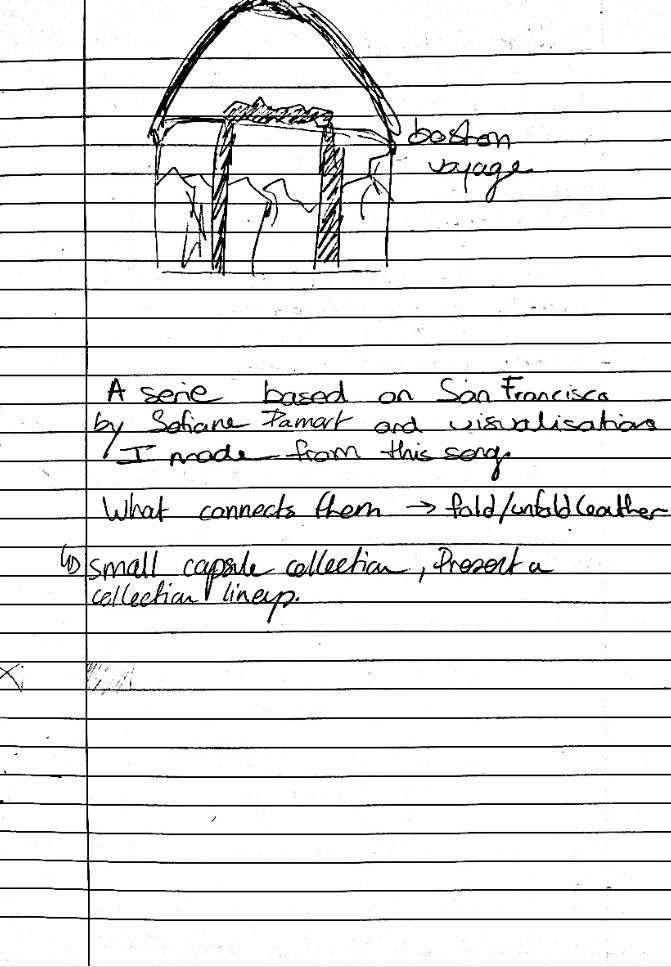 boston
voyage
A serie based on San Francisco
by Sofiane Pamart and visualisations
I made from this song.
What connects them → fold/unfold leather
↳ small capsule collection, Present a
collection lineup.